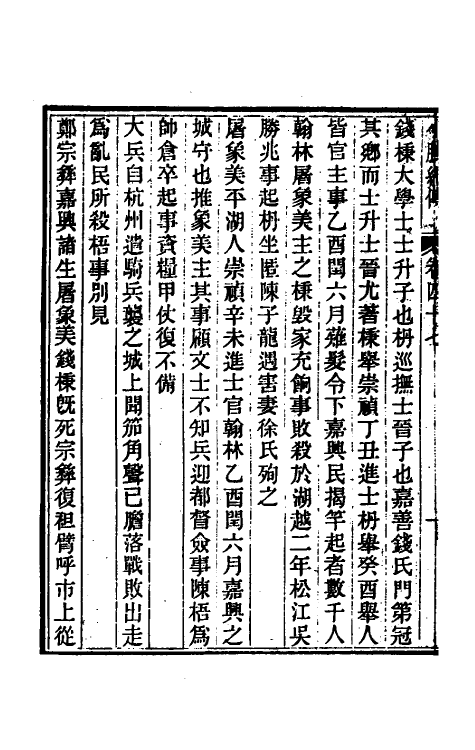 錢棅大學士士升子也枬巡撫士晉子也嘉善錢氏門第冠
其鄉而士升士晉尤著棅舉崇禎丁丑進士枬舉癸酉舉人
皆官主事乙酉閏六月薙髮令下嘉興民揭竿起者數千人
翰林屠象美主之棅毀家充餉事敗殺於湖越二年松江吳
勝兆事起枬坐匿陳子龍遇害妻徐氏殉之
屠象美平湖人崇禎辛未進士官翰林乙酉閏六月嘉興之
城守也推象美主其事顧文士不知兵迎都督僉事陳梧爲
帥倉卒起事資糧甲仗復不備
大兵自杭州遣騎兵襲之城上聞笳角聲已膽落戰敗出走
爲亂民所殺梧事別見
鄭宗彝嘉興諸生屠象美錢棅旣死宗彝復袒臂呼市上從